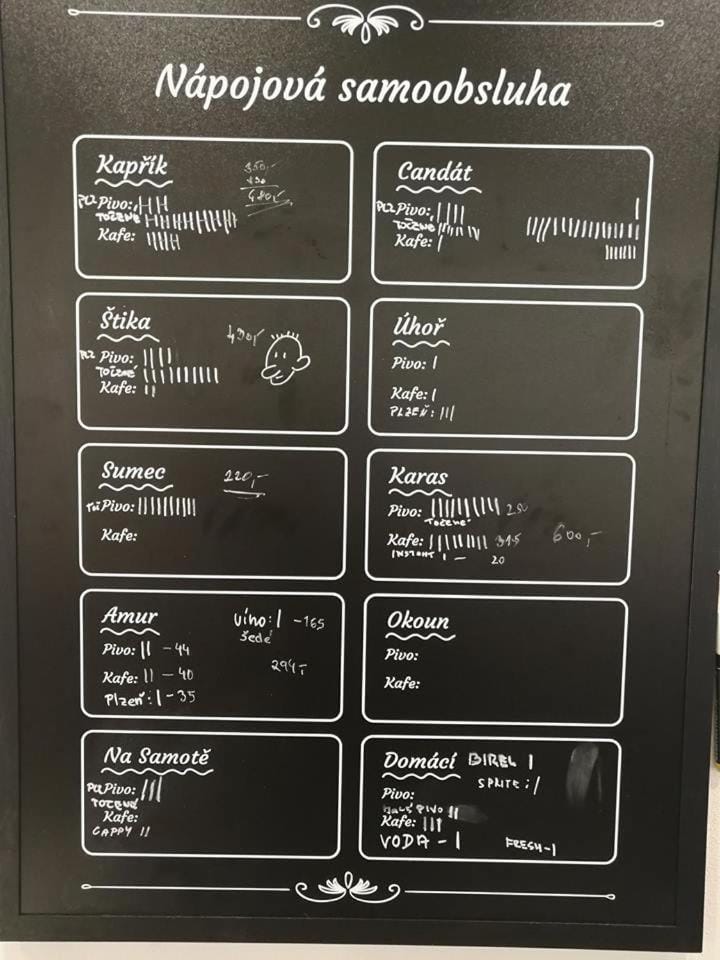 Nápojová samoobsluha
Kapřík
350,-
130
480,-
PLZ Pivo:
TOČENÉ
Kafe:
Candát
PLZ Pivo:
TOČENÉ
Kafe:
Štika
490,-
PLZ Pivo:
TOČENÉ
Kafe:
Úhoř
Pivo: I
Kafe: I
PLZEŇ: III
Sumec
220,-
Pivo:
Kafe:
Karas
Pivo: 250
TOČENÉ
Kafe: 315
600,-
INSTANT I - 20
Amur
víno: I - 165
šedé
Pivo: II - 44
294,-
Kafe: II - 40
Plzeň: I - 35
Okoun
Pivo:
Kafe:
Na Samotě
PLZ Pivo: III
TOČENÉ
Kafe:
CAPPY II
Domácí BIREL I
SPRITE: I
Pivo:
MALÉ PIVO II
Kafe: III
VODA - I
FRESH - I